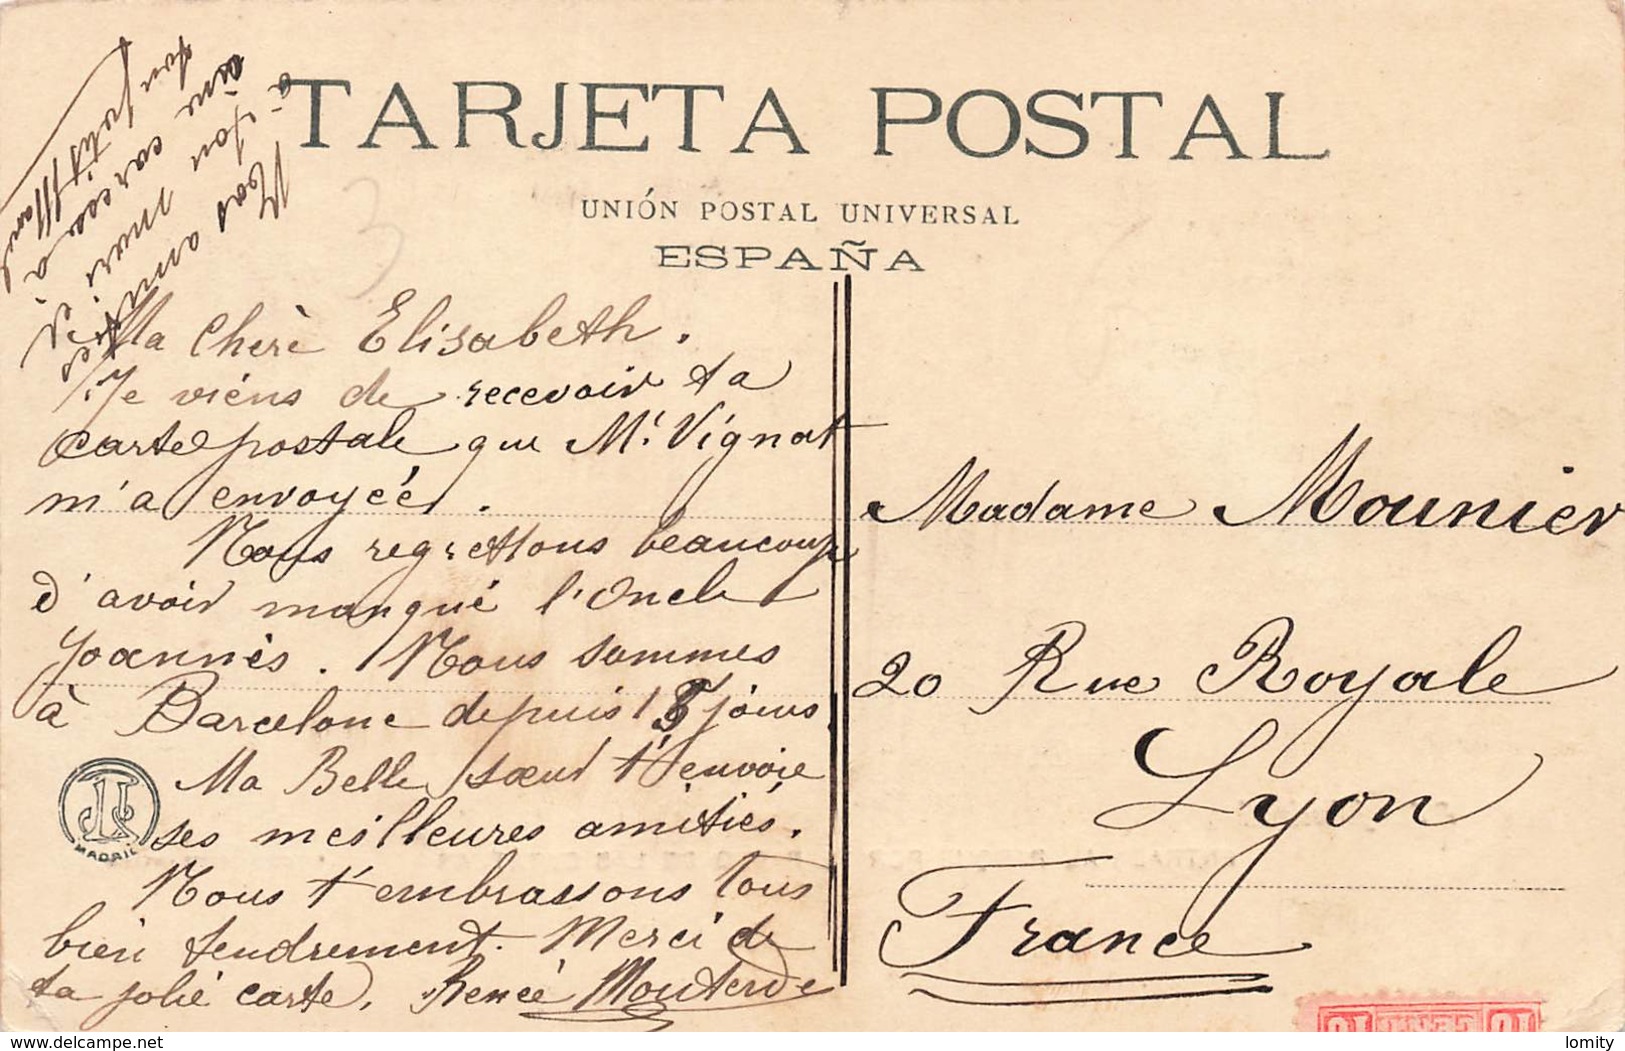 TARJETA POSTAL
UNIÓN POSTAL UNIVERSAL
ESPAÑA
Ma Chère Elisabeth.
Je viens de recevoir ta
carte postale que Mr. Vignat
m'a envoyée.
Nous regrettons beaucoup
d'avoir manqué l'Oncle
Joannès. Nous sommes
à Barcelone depuis 15 jours.
Ma Belle sœur t'envoie
ses meilleures amitiés.
Nous t'embrassons tous
bien tendrement. Merci de
ta jolie carte. Renée Mouterde
Nos amitiés
à ton mari et
une caresse à
ton petit Marcel
MADRID
Madame Mounier
20 Rue Royale
Lyon
France
10 CENT 10
3
lomity